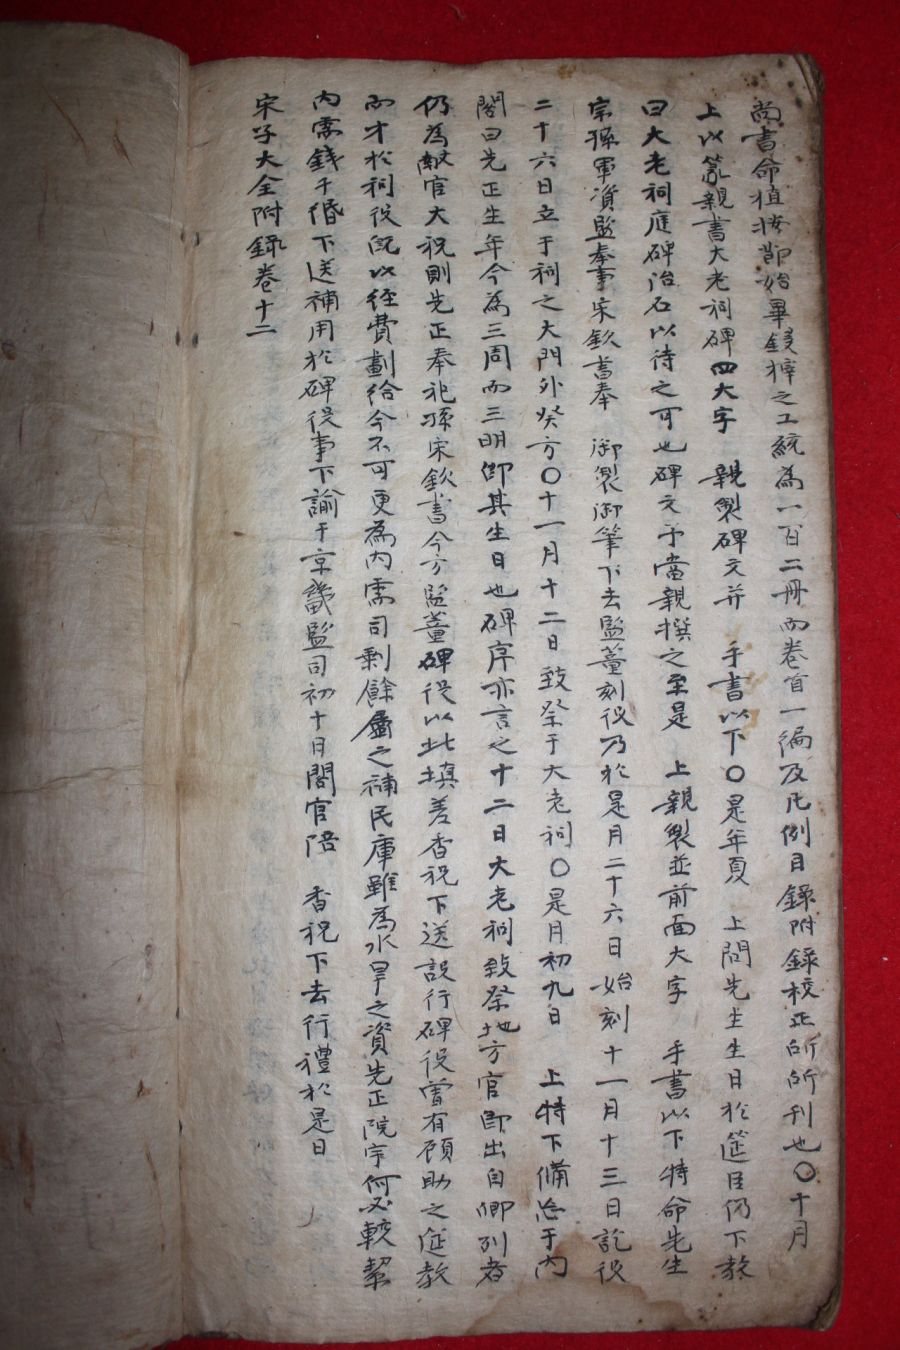 尚書命植按節始畢鋟梓之工統為一百二冊而卷首一編及凡例目錄附錄校正所所刊也〇十月
上以篆親書大老祠碑四大字 親製碑文并 手書以下〇是年夏 上問先生生日於筵臣仍下教
曰大老祠庭碑治石以待之可也碑文予當親撰之至是 上親製並前面大字 手書以下特命先生
宗孫軍資監奉事宋欽書奉 御製御筆下去監董刻役乃於是月二十六日始刻十一月十三日訖役
二十六日立于祠之大門外癸方〇十一月十二日致祭于大老祠〇是月初九日 上特下備忘于內
閣曰先正生年今為三周而三明即其生日也碑序亦言之十二日大老祠致祭地方官即出自卿列者
仍為獻官大祝則先正奉祀孫宋欽書今方監董碑役以此填差香祝下送設行碑役嘗有顧助之筵教
而才於祠役旣以經費劃給今不可更為內需司剩餘屬之補民庫雖為水旱之資先正院宇何必較絜
內需錢千緡下送補用於碑役事下諭于京畿監司初十日閣官陪 香祝下去行禮於是日
宋子大全附錄卷十二